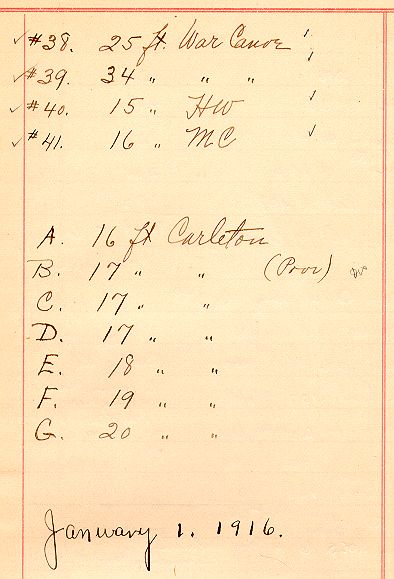 ✓ #38. 25 ft. War Canoe ✓
✓ #39. 34 " " " ✓
✓ #40. 15 " HW ✓
✓ #41. 16 " MC ✓
A. 16 ft Carleton
B. 17 " " (Prov)
C. 17 " "
D. 17 " "
E. 18 " "
F. 19 " "
G. 20 " "
January 1. 1916.